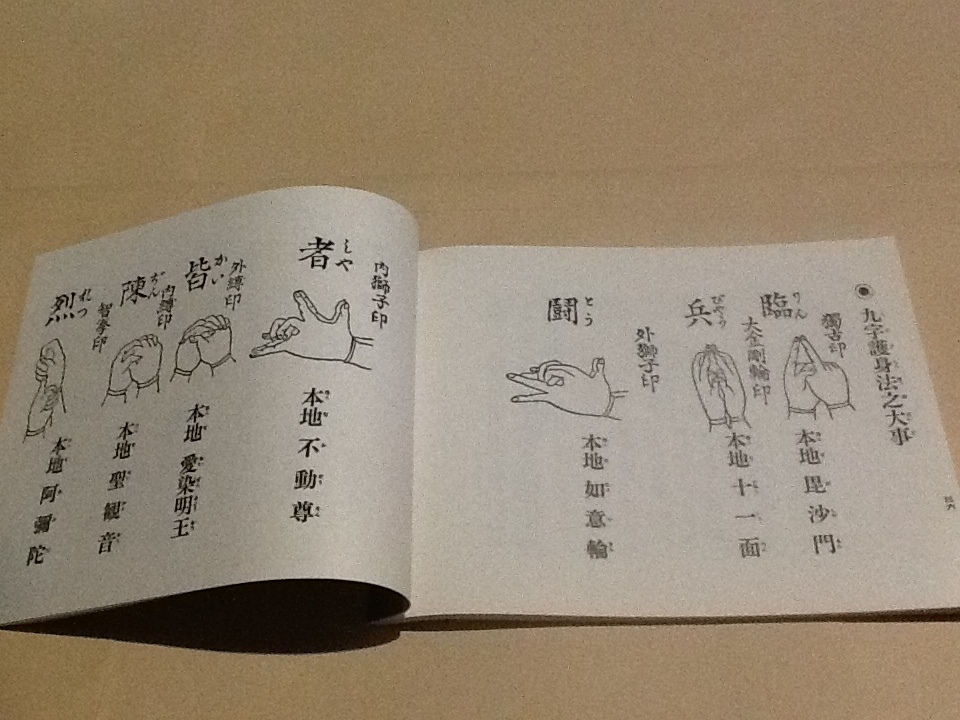 九字護身法之大事
獨古印
臨
りん
本地毘沙門
大金剛輪印
兵
びやう
本地十一面
外獅子印
闘
とう
本地如意輪
內獅子印
者
しや
本地不動尊
外縛印
皆
かい
本地愛染明王
内縛印
陳
ぢん
本地聖観音
智拳印
烈
れつ
本地阿彌陀